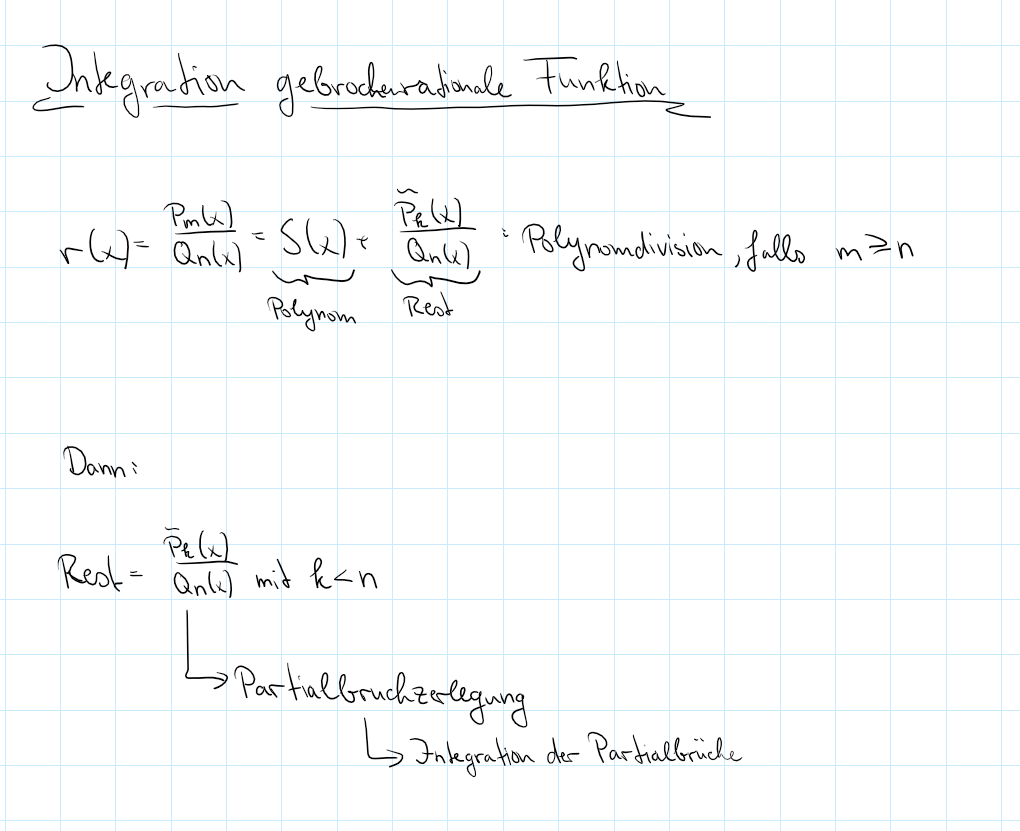 Integration gebrochenrationale Funktion
r(x) = Pm(x)/Qn(x) = S(x) + P̃k(x)/Qn(x) : Polynomdivision, falls m ≥ n
Polynom Rest
Dann:
Rest = P̃k(x)/Qn(x) mit k < n
↳ Partialbruchzerlegung
↳ Integration der Partialbrüche